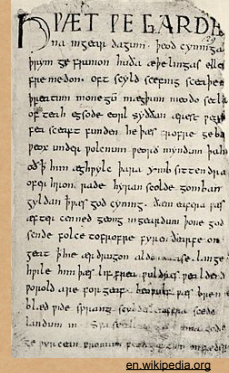 HǷÆT ǷE GARDE
na ingear dagum. þeod cyninga
þrym ge frunon huða æþelingas elle
fremedon. oft scyld scefing sceaþe
þreatum monegū mægþum meodo setla
of teah egsode eorl syððan ærest ƿea
fea sceaft funden he þæs frofre geba
ƿeox under ƿolcnum ƿeorð myndum þah
oð þ him æghƿylc þara ymb sittendra
ofer hron rade hyran scolde gomban
gyldan þ ƿæs god cyning. ðæm eafera ƿæs
æfter cenned geong ingeardum þone god
sende folce tofrofre fyren ðearfe on
geat þ hie ær drugon aldor ase. lange
hƿile him þæs lif frea ƿuldres ƿealdend
ƿorold are for geaf. beoƿulf ƿæs breme
blæd ƿide sprang scyldes eafera scede
landum in.
ge ƿyrcean fromum
en.wikipedia.org